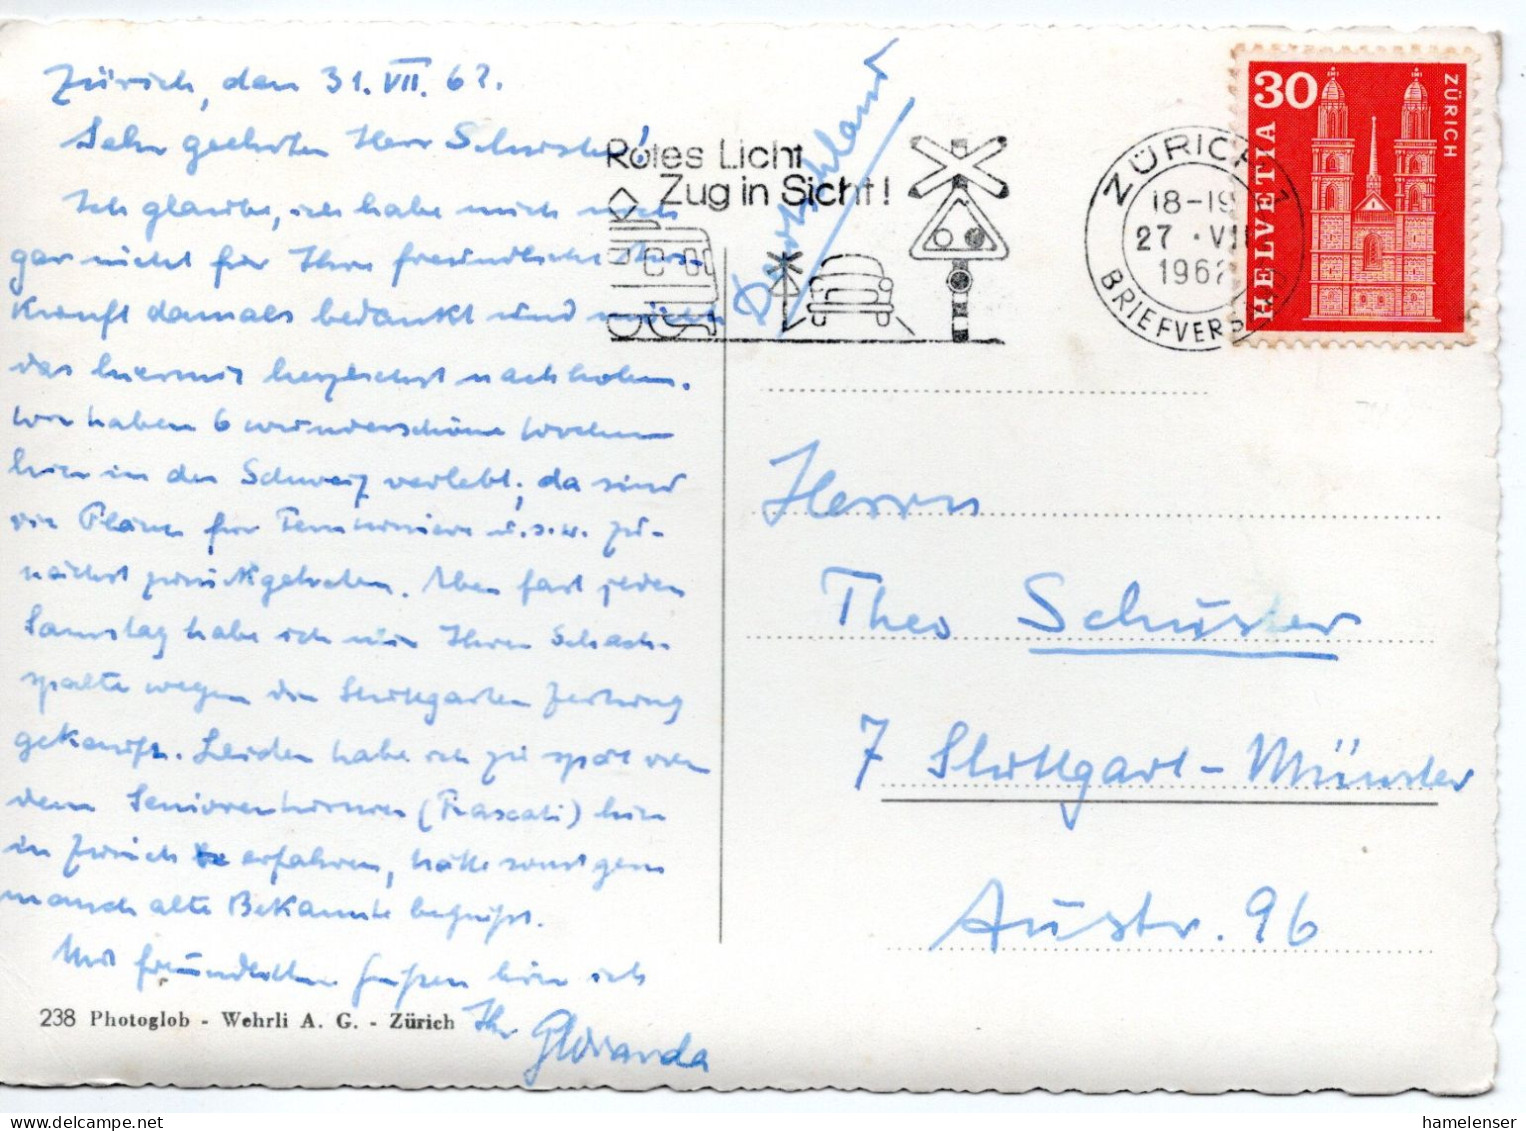 Zürich, den 31. VII. 62.
Sehr geehrter Herr Schuster!
Ich glaube, ich habe mich noch
gar nicht für Ihre freundliche Aus-
kunft damals bedankt und möchte
das hiermit herzlichst nachholen.
Wir haben 6 wunderschöne Wochen
hier in der Schweiz verlebt; da sind
die Pläne für Fernturniere u.s.w. zu-
nächst zurückgetreten. Aber fast jeden
Samstag habe ich mir Ihren Schach-
spalte wegen die Stuttgarter Zeitung
gekauft. Leider habe ich zu spät von
dem Seniorenturnier (Frascati) hier
in Zürich erfahren, hätte sonst gern
manch alte Bekannte begrüßt.
Mit freundlichen Grüßen bin ich
Ihr
238 Photoglob - Wehrli A. G. - Zürich
Deutschland
Rotes Licht
Zug in Sicht!
ZÜRICH 1
18-19
27 · VII
1962
BRIEFVERS
30
HELVETIA
ZÜRICH
Herrn
Theo Schuster
7 Stuttgart-Münster
Austr. 96
hamelenser